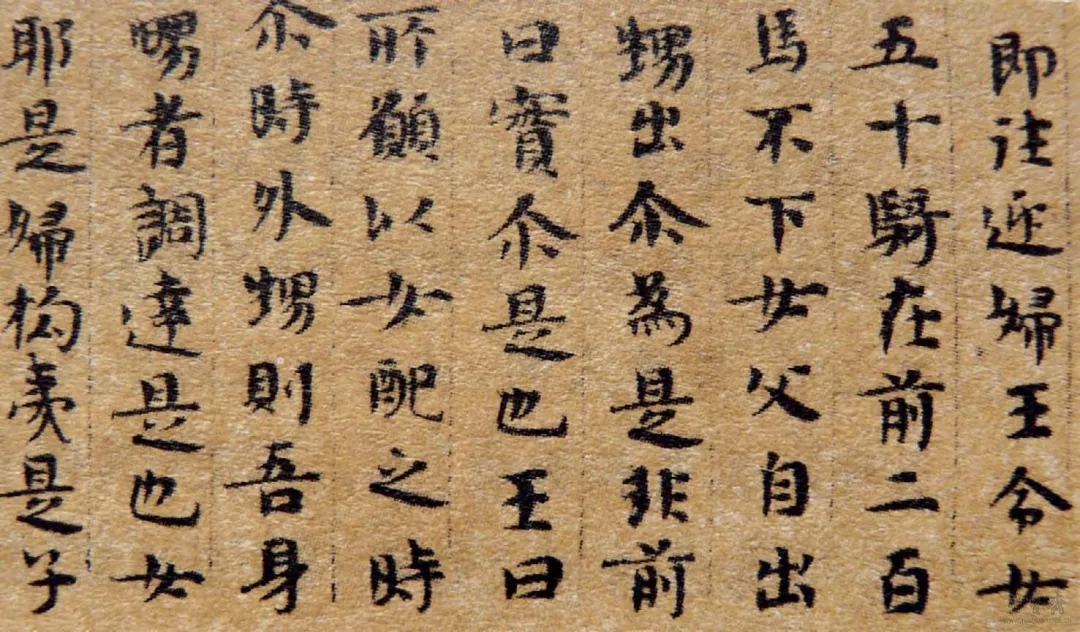 即往迎婦王令女
五十騎在前二百
馬不下女父自出
甥出尒為是非前
曰實尒是也王曰
所願以女配之時
尒時外甥則吾身
舅者調達是也女
耶是婦拘夷是子